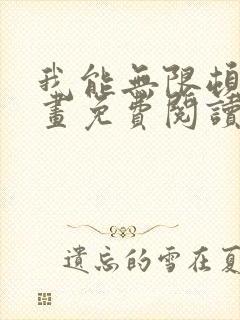 我能無限頓
畫免費閱讀
遺忘的雪在夏